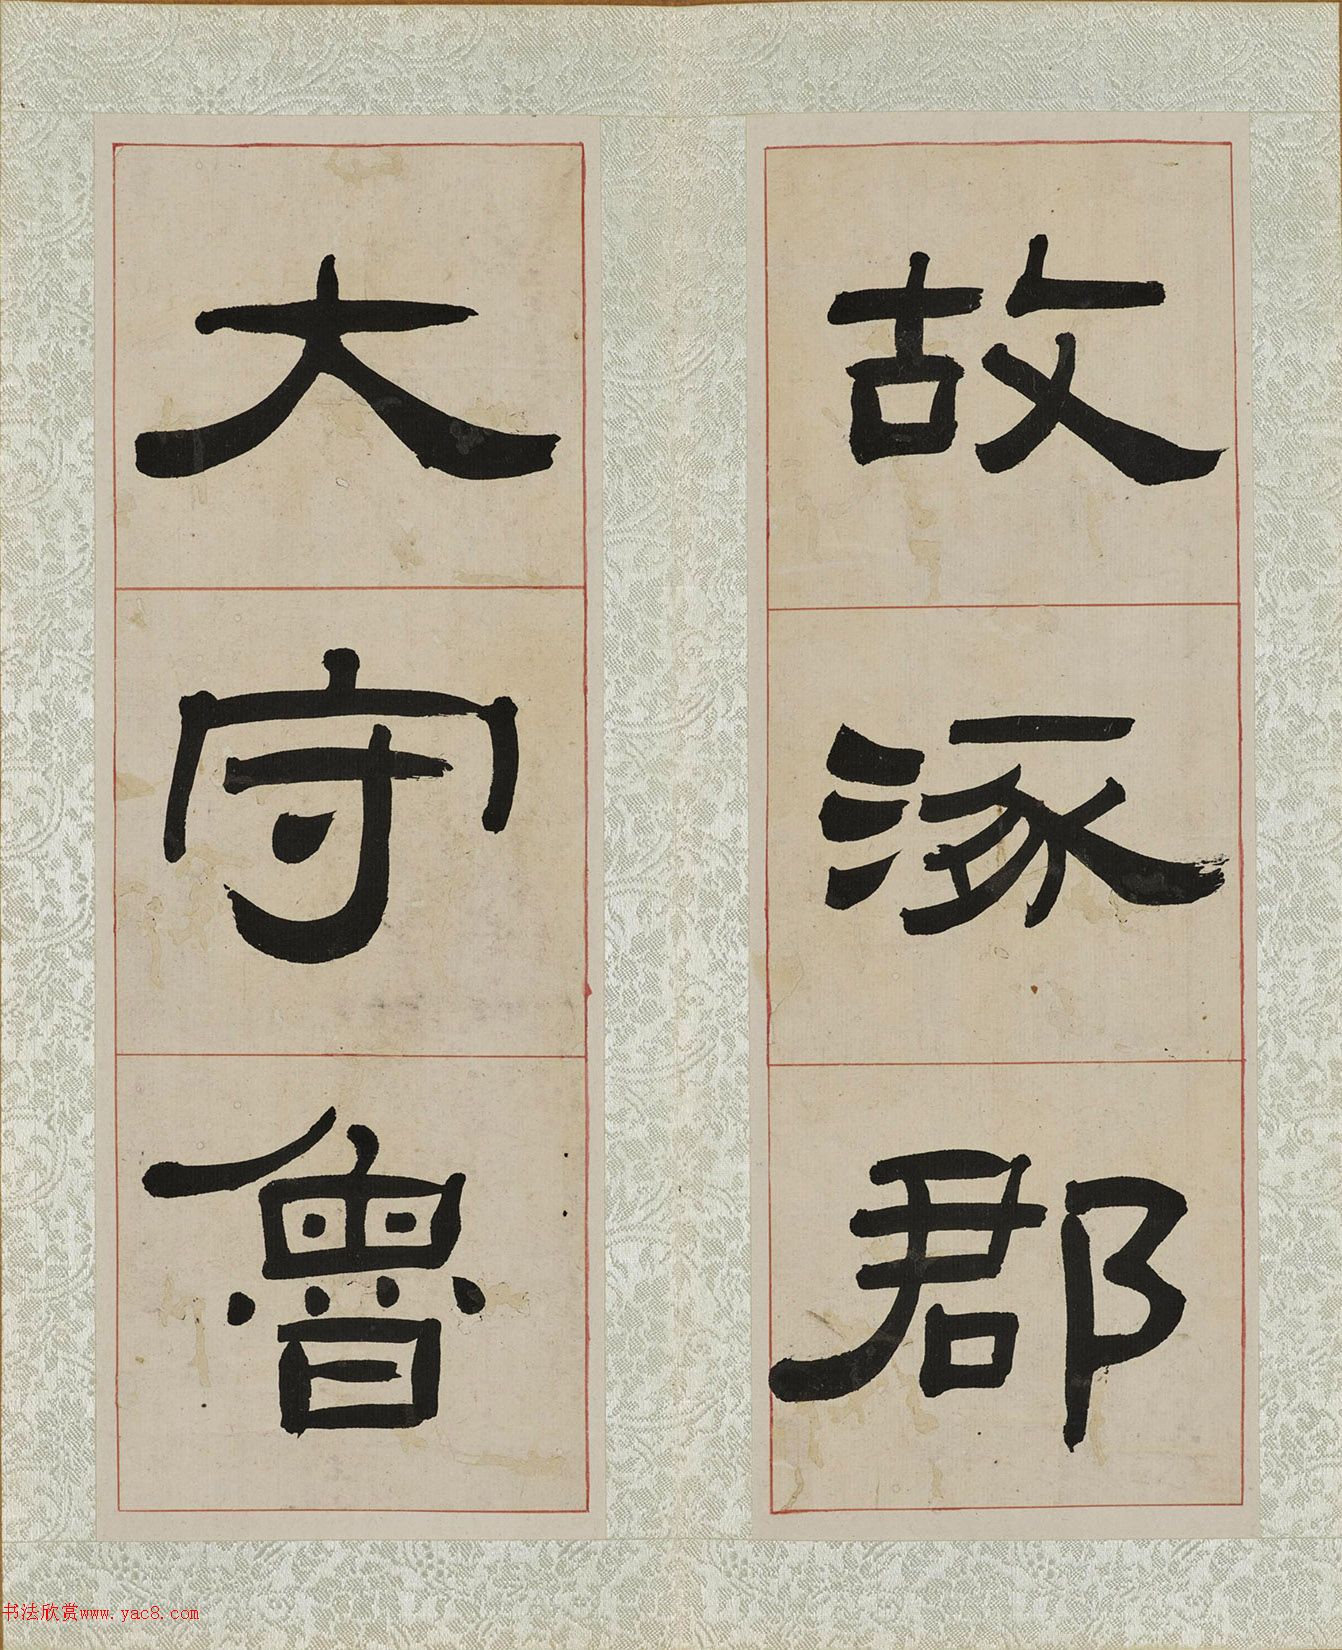 故涿郡
大守魯
书法欣赏www.yac8.com